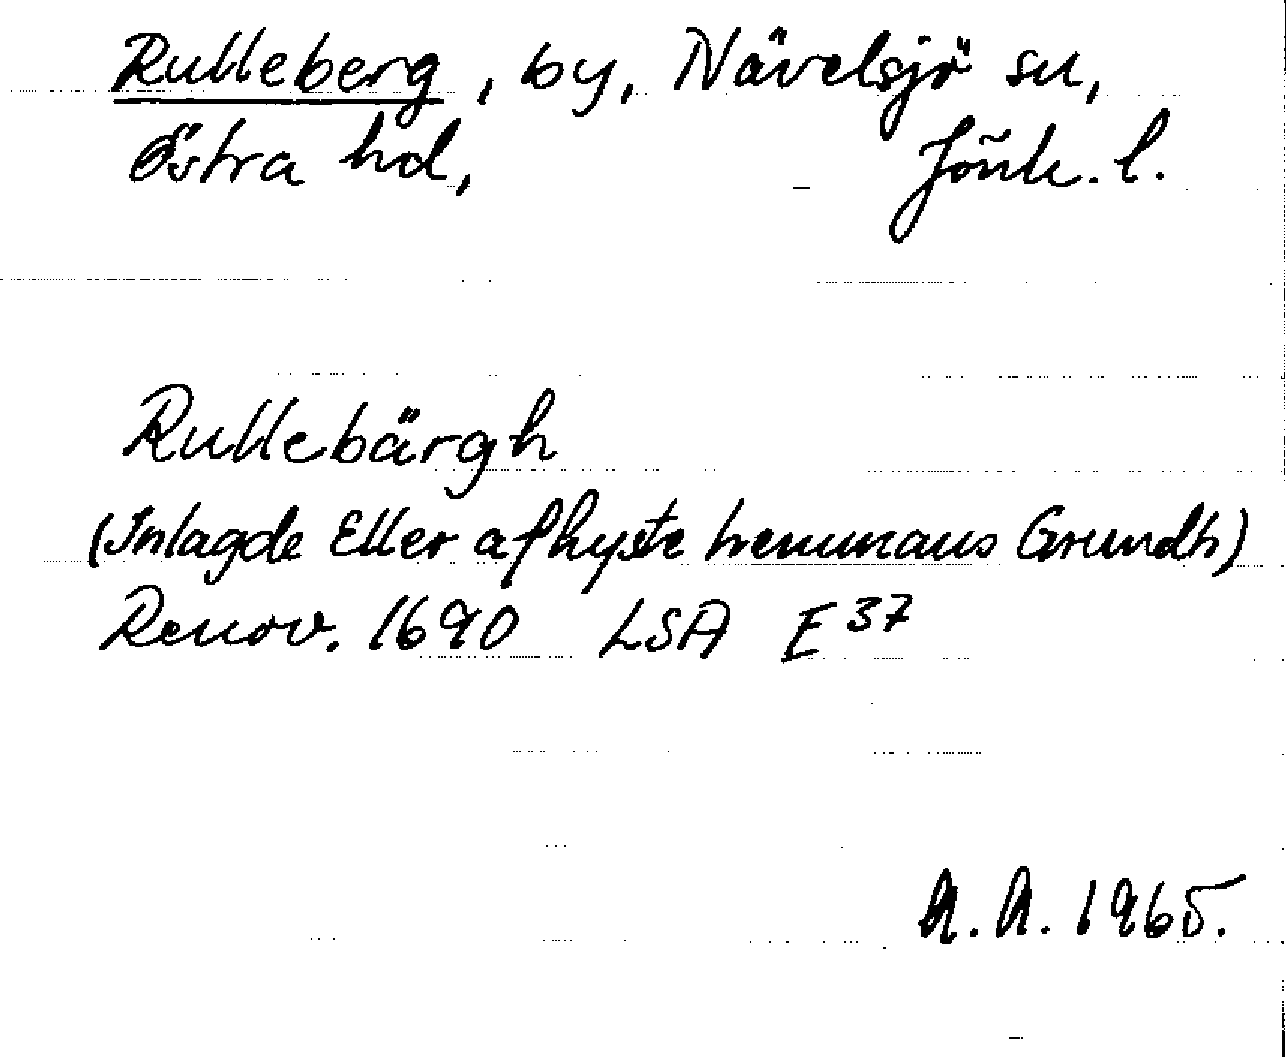 Rulleberg, by, Nävelsjö sn,
Östra hd, Jönk. l.
Rullebärgh
(Inlagde Eller afhyste hemmans Grundh)
Renov. 1690 LSA E37
A.A. 1965.